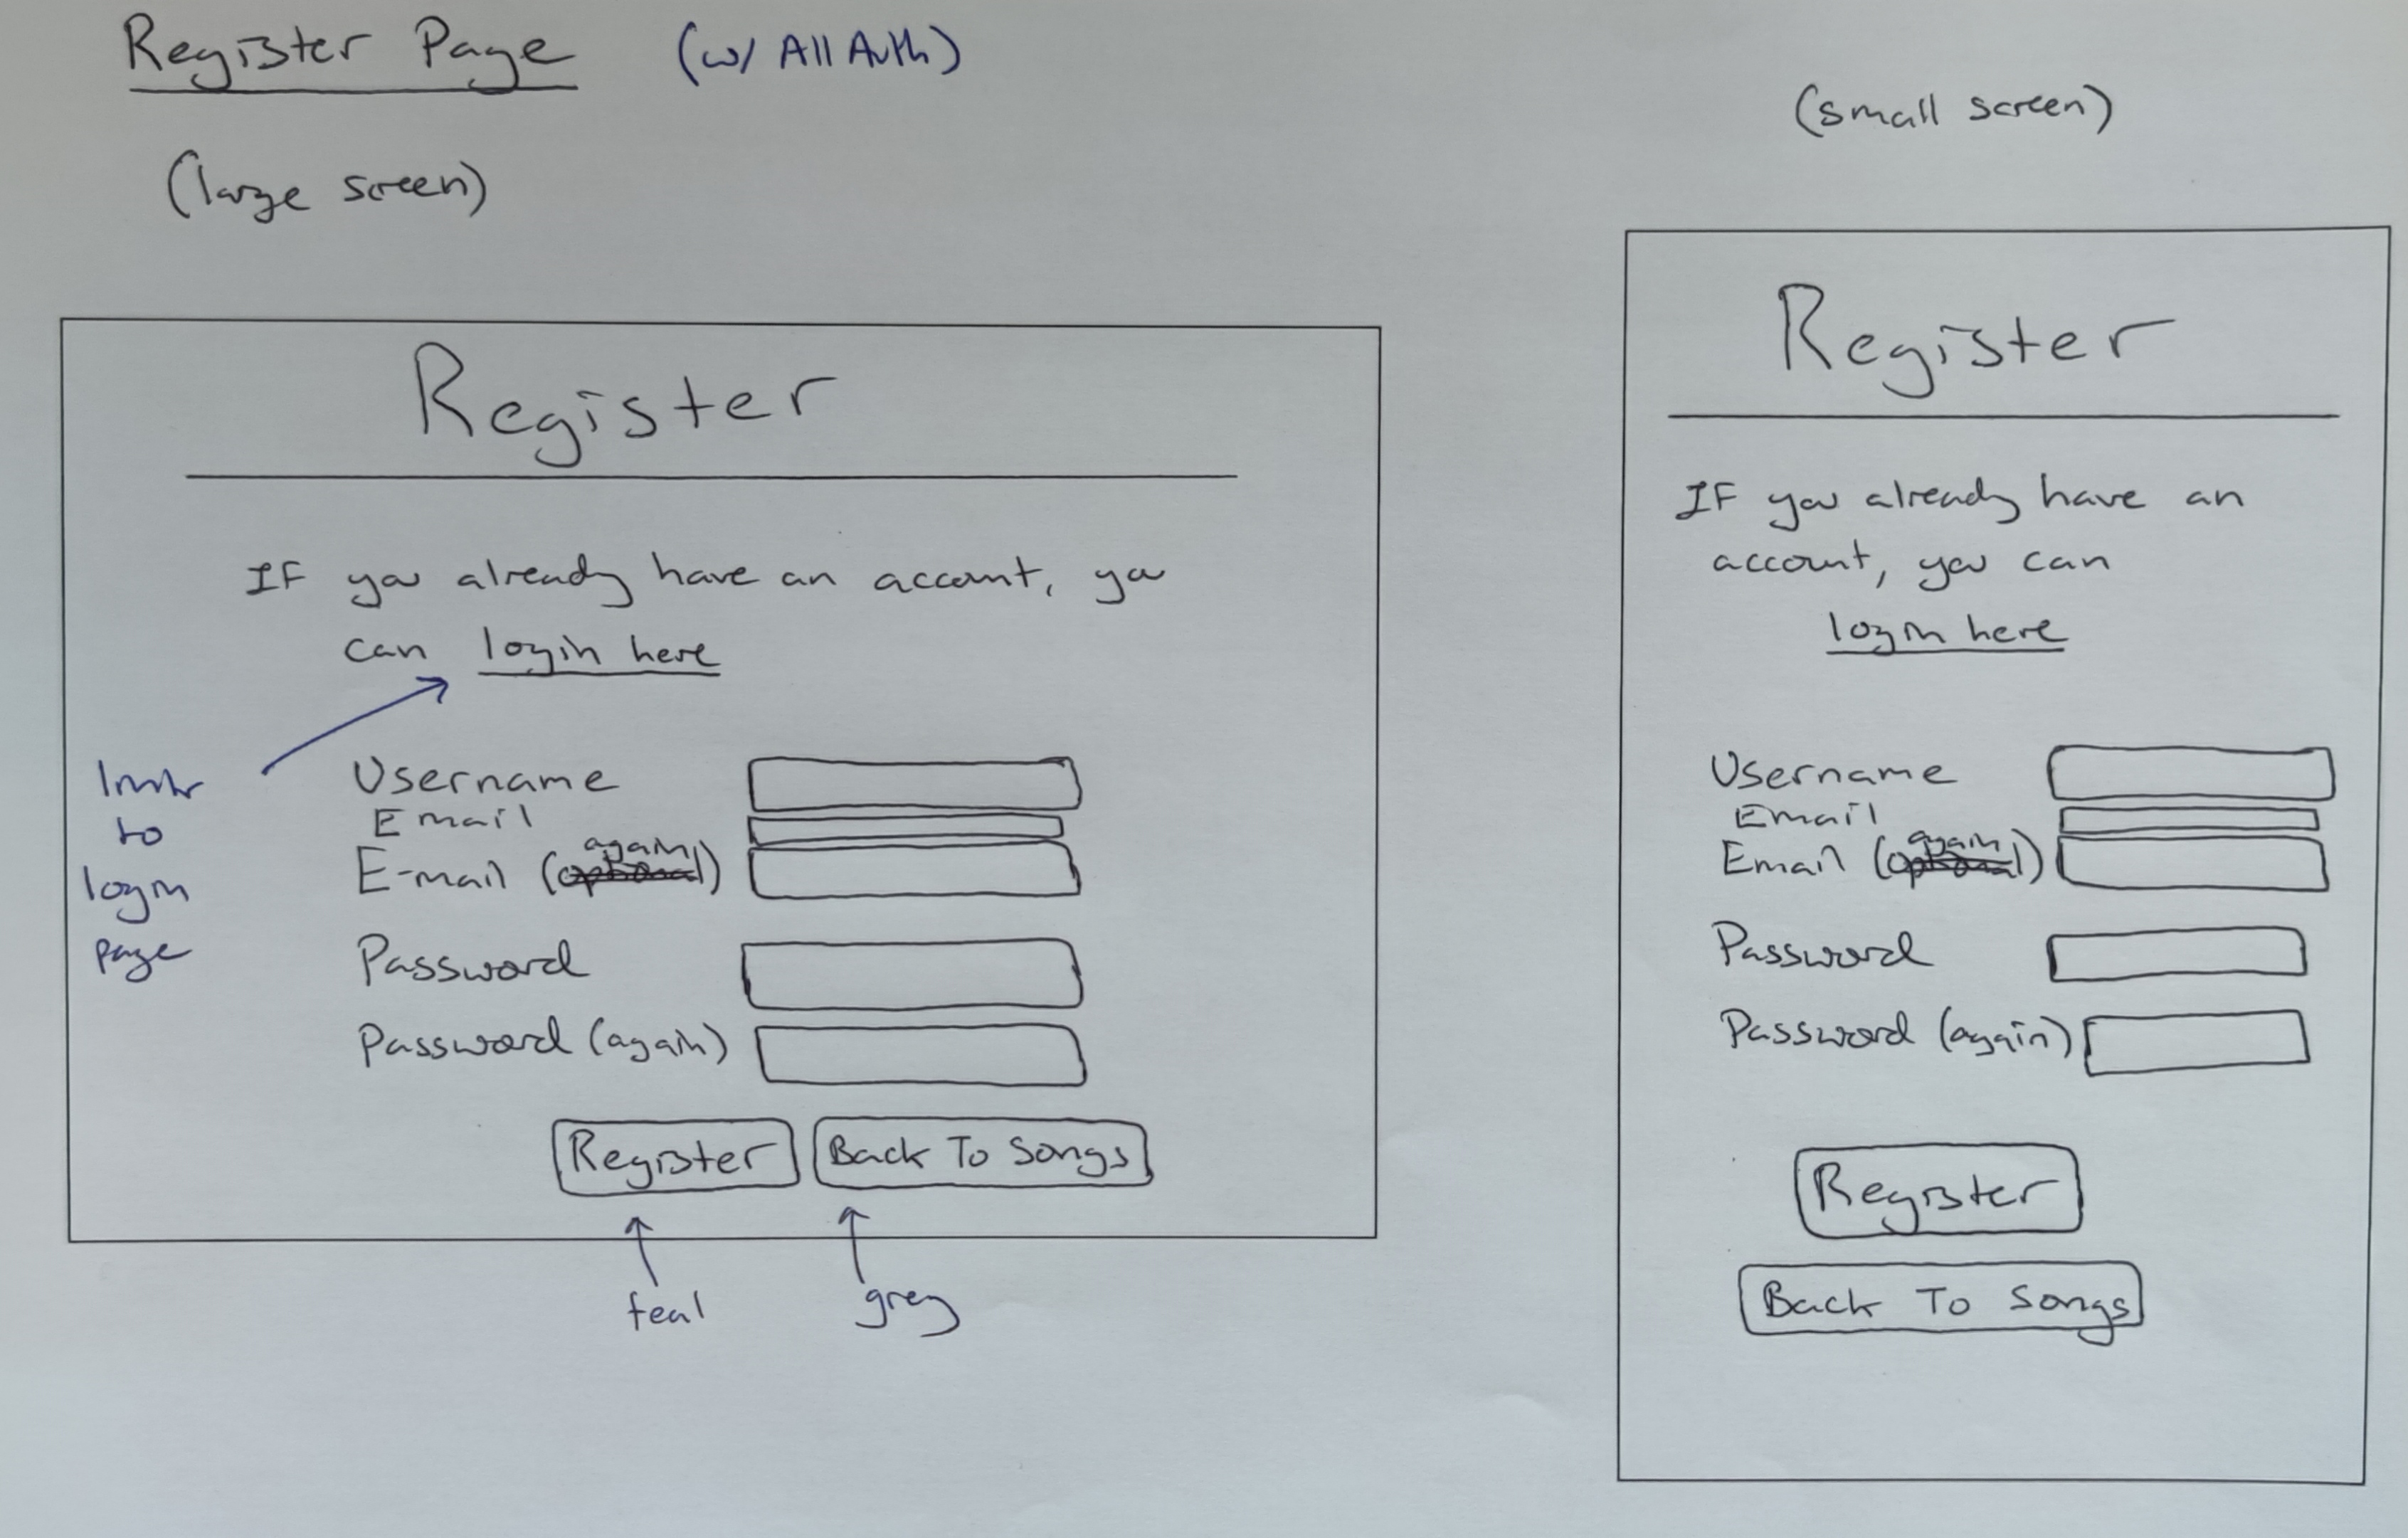 Register Page (w/ All Auth)
(large screen)
Register
IF you already have an account, you
can login here
link
to
login
page
Username
Email
again
E-mail (optional)
Password
Password (again)
Register Back To Songs
teal grey
(small screen)
Register
IF you already have an
account, you can
login here
Username
Email
again
Email (optional)
Password
Password (again)
Register
Back To Songs